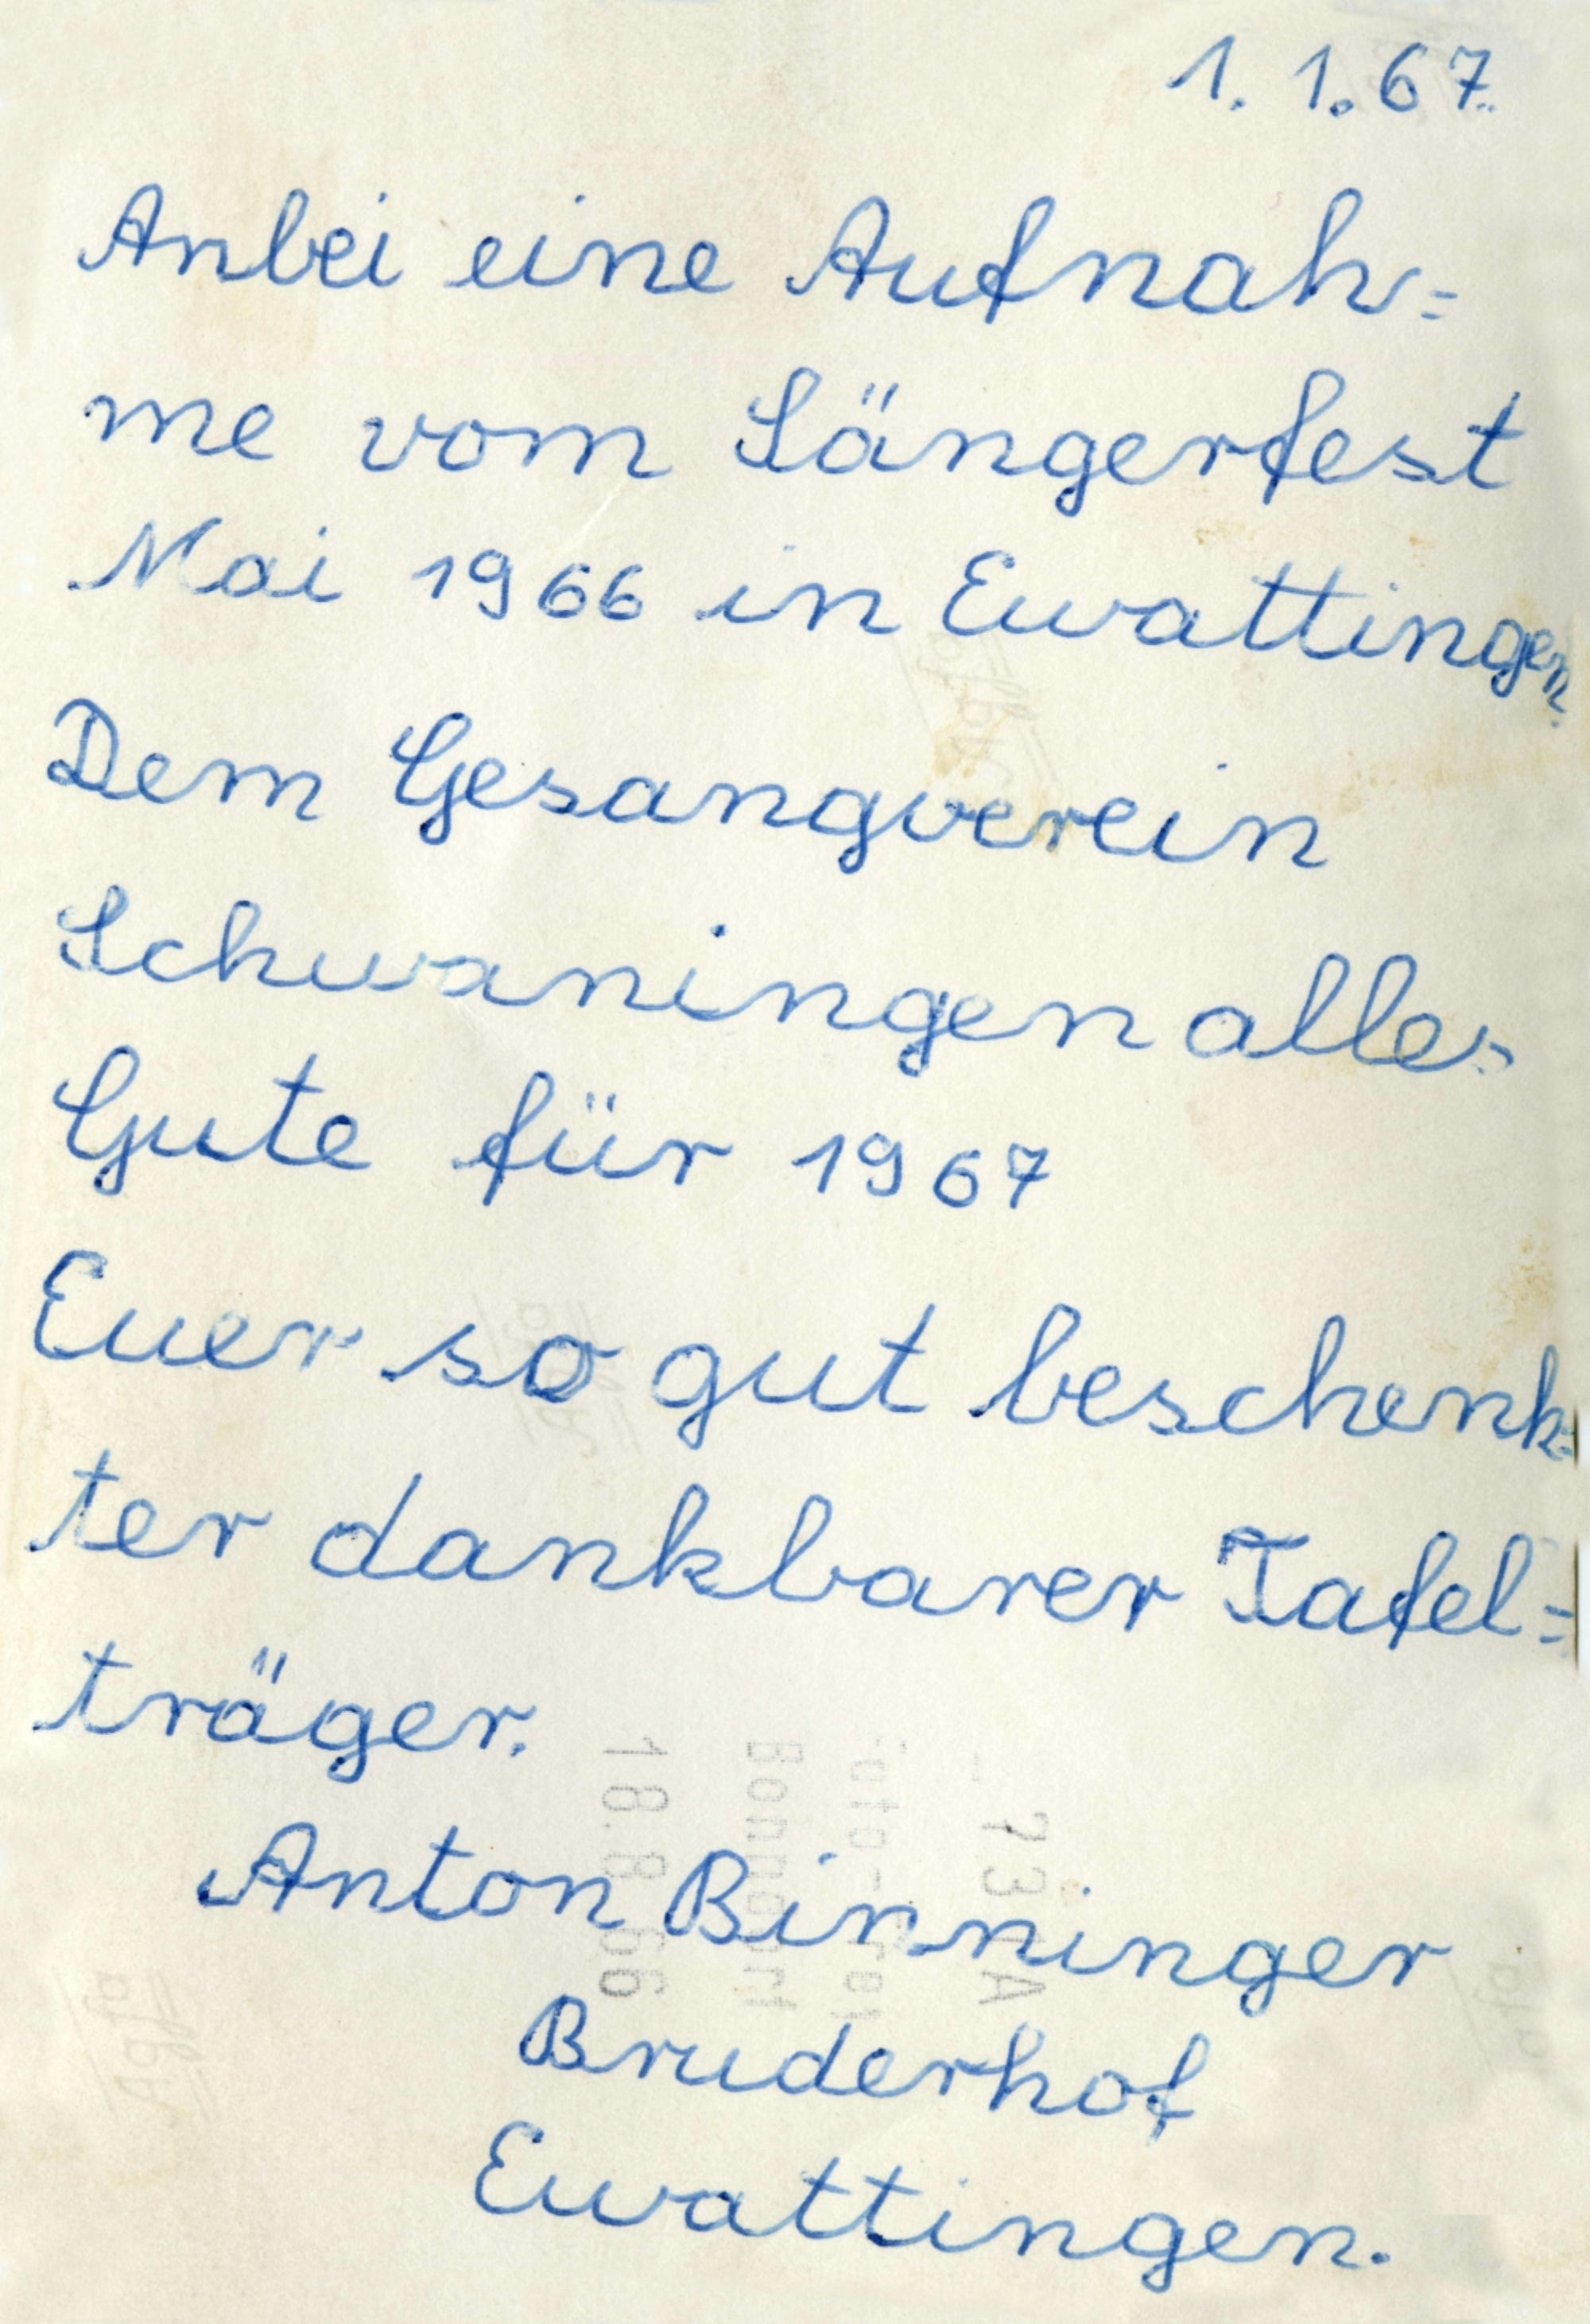 1. 1. 67.
Anbei eine Aufnah=
me vom Sängerfest
Mai 1966 in Ewattingen.
Dem Gesangverein
Schwaningen alles
Gute für 1967
Euer so gut beschenk=
ter dankbarer Tafel=
träger.
Anton Binninger
Bruderhof
Ewattingen.
73 A
Bonndorf
18.8.66